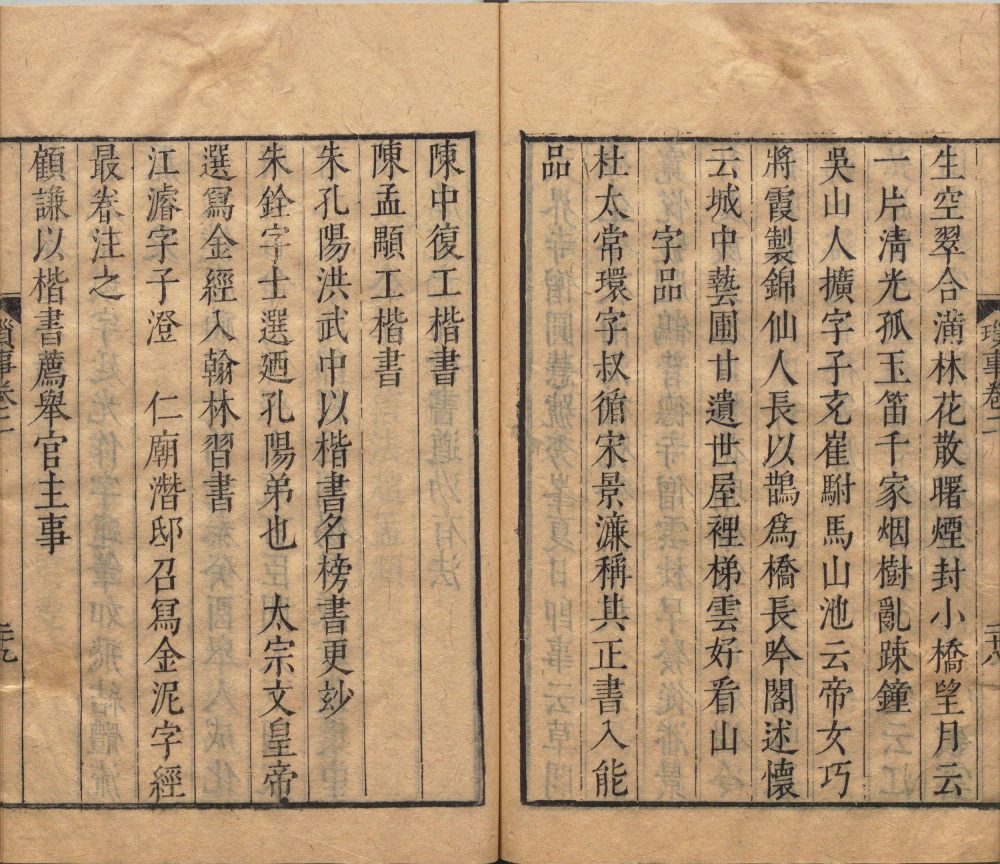 生空翠合滿林花散曙煙封小橋望月云
一片清光孤玉笛千家烟樹亂踈鐘
吳山人擴字子充崔駙馬山池云帝女巧
將霞製錦仙人長以鵲為橋長吟閣述懷
云城中藝圃甘遺世屋裡梯雲好看山
字品
杜太常環字叔循宋景濂稱其正書入能
品
陳中復工楷書
陳孟顒工楷書
朱孔陽洪武中以楷書名榜書更妙
朱銓字士選廼孔陽弟也太宗文皇帝
選寫金經入翰林習書
江濬字子澄 仁廟潛邸召寫金泥字經
最眷注之
顧謙以楷書薦舉官主事
瑣事卷二